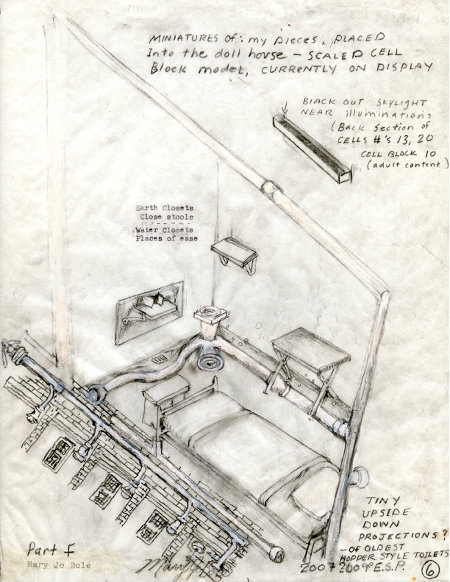 MINIATURES OF: my pieces, PLACED
Into the doll house - SCALED CELL
Block model, CURRENTLY ON DISPLAY
BLACK OUT SKYLIGHT
NEAR Illuminations
(Back Section of
CELLS #'S 13, 20
CELL BLOCK 10
(adult content)
Earth Closets
Close stools
Water Closets
Places of ease
TINY
UPSIDE
DOWN
PROJECTIONS?
- OF OLDEST
HOPPER STYLE TOILETS
Part F
Mary Jo Bole
2007 2009 E.S.P.
6